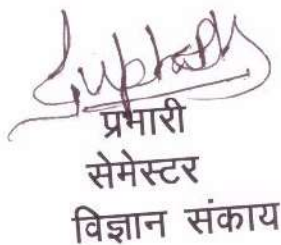 प्रभारी
सेमेस्टर
विज्ञान संकाय